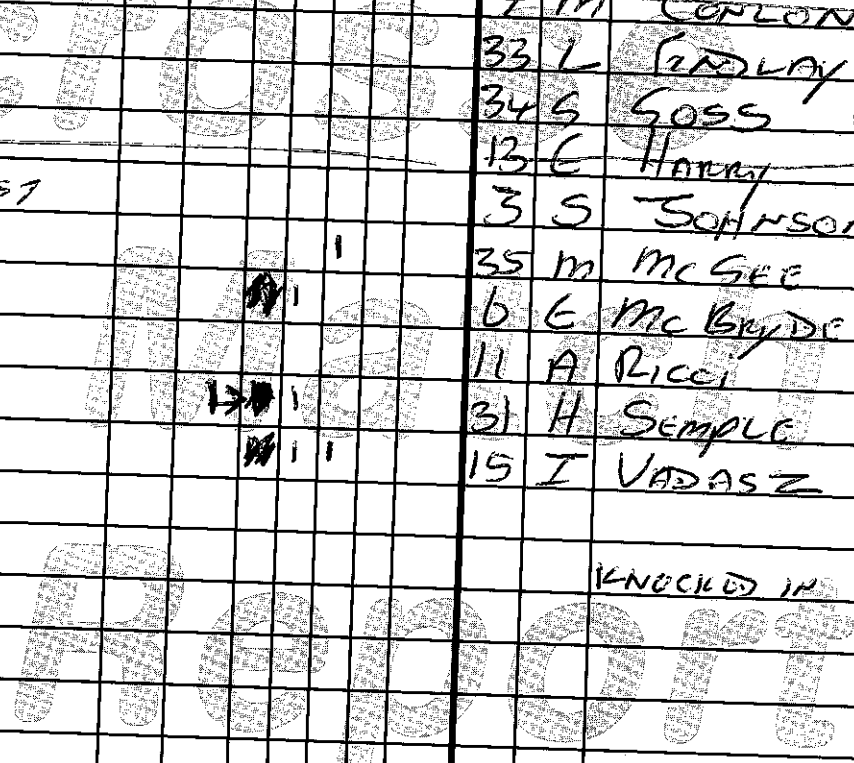 M CONLON
33 L FINDLAY
34 S GOSS
13 E HARRY
3 S JOHNSON
35 M MCGEE
6 E MCBRYDE
11 A RICCI
31 H SEMPLE
15 I VADASZ
KNOCKED IN
Match
Report